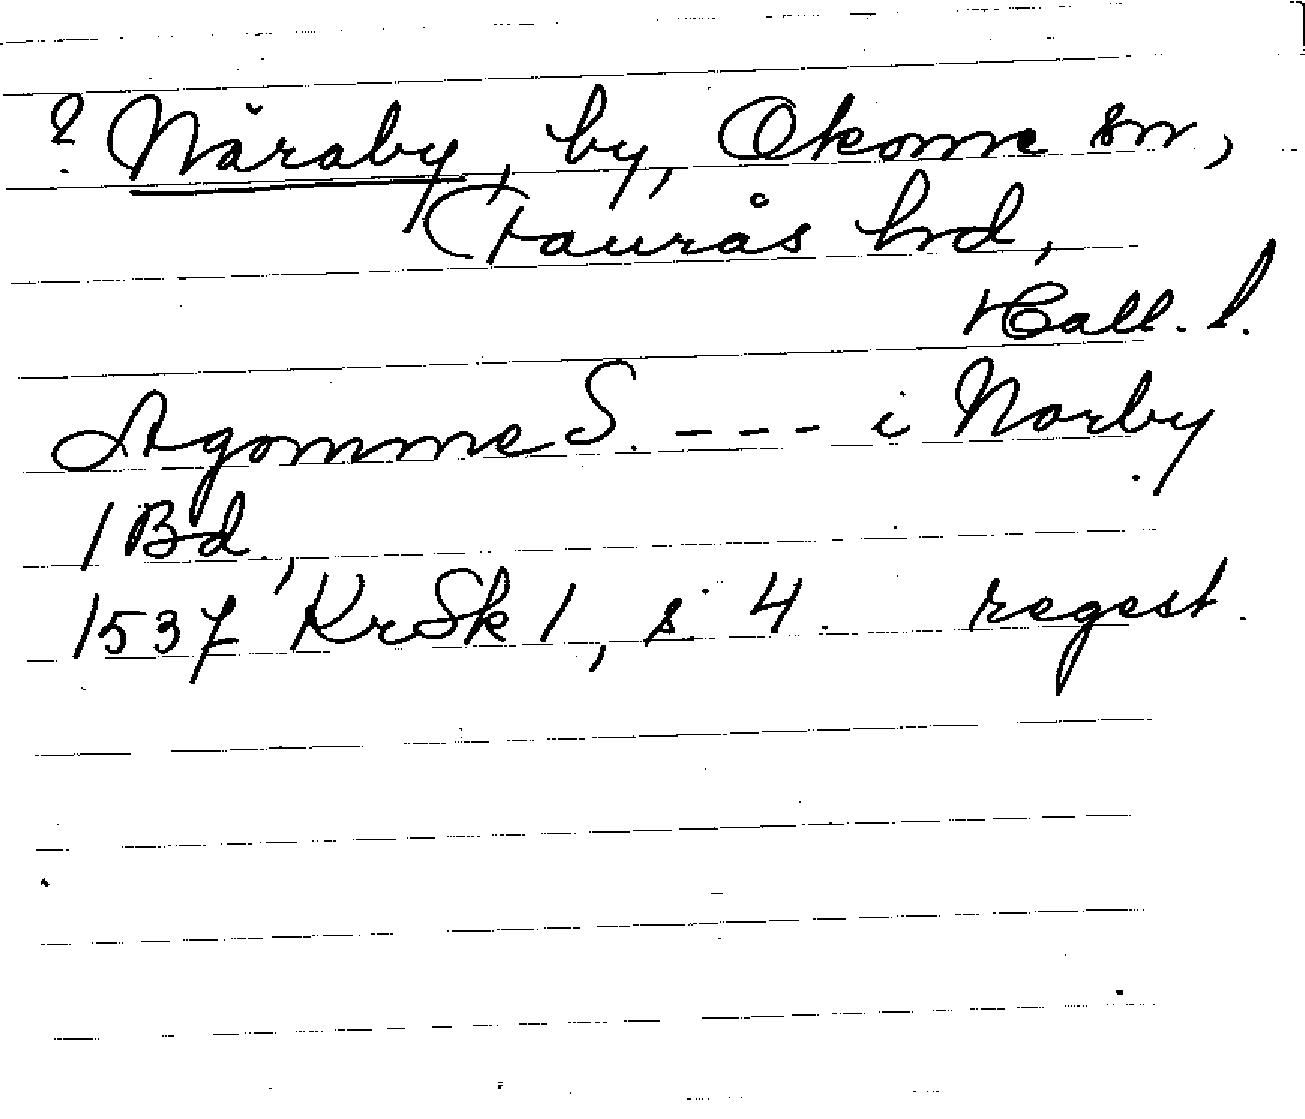 ? Näraby, by, Okome sn,
Faurås hrd,
Hall. l.
Agomme S. - - - i Norby
1 Bd.,
1537 KrSk 1, s 4. regest.